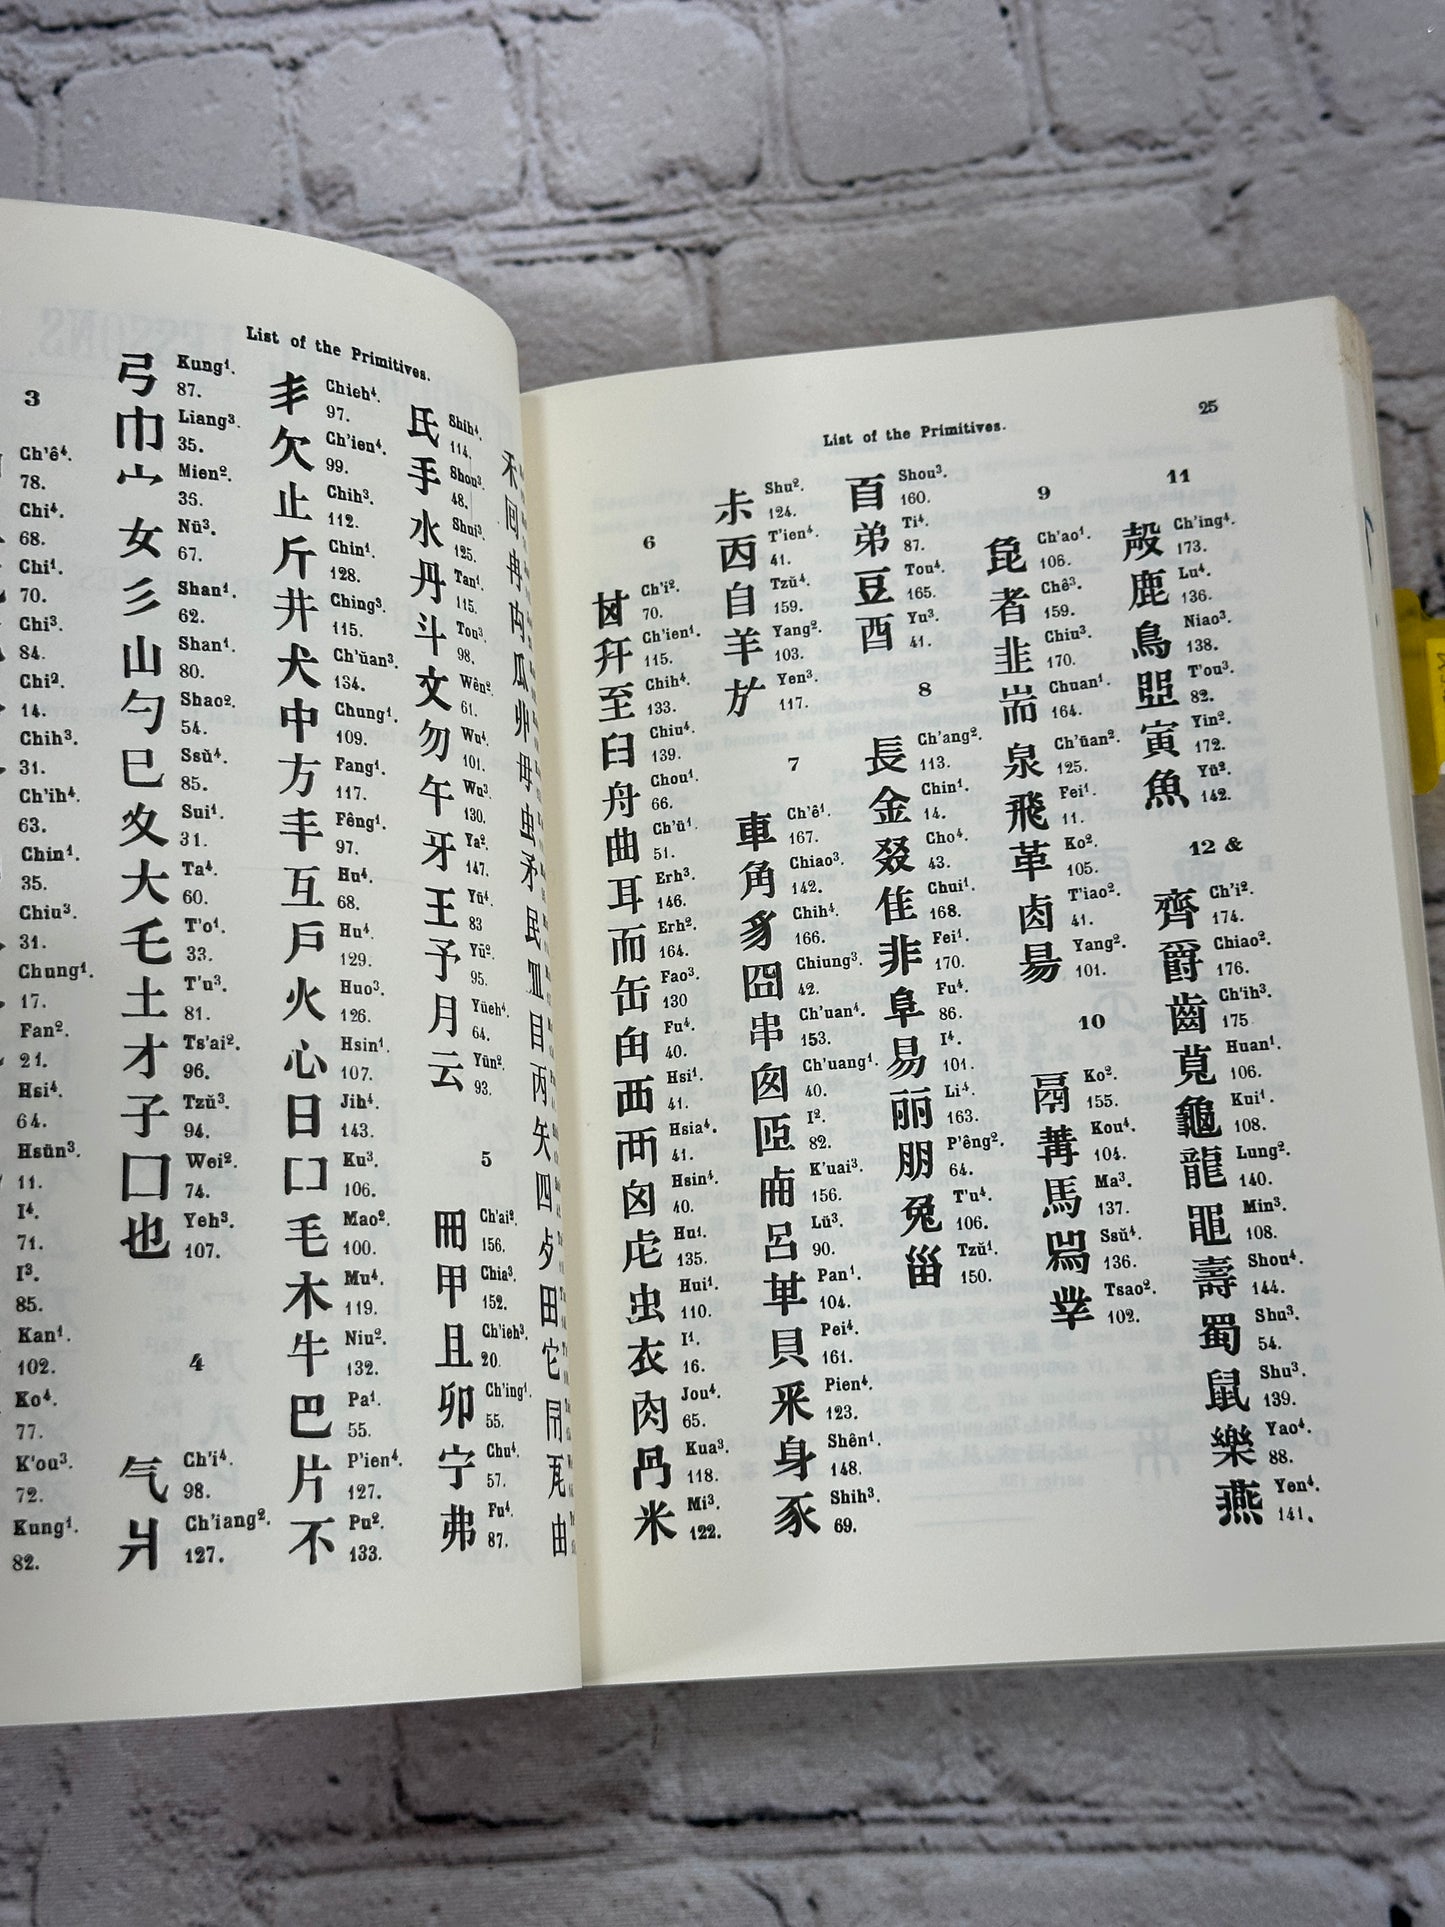 List of the Primitives.
3
Ch'ê⁴.
78.
Chi⁴.
68.
Chi¹.
70.
Chi³.
84.
Chi².
14.
Chih³.
31.
Ch'ih⁴.
63.
Chin¹.
35.
Chiu³.
31.
Chung¹.
17.
Fan².
21.
Hsi⁴.
64.
Hsün³.
11.
I⁴.
71.
I³.
85.
Kan¹.
102.
Ko⁴.
77.
K'ou³.
72.
Kung¹.
82.
弓 Kung¹.
87.
巾 Liang³.
35.
宀 Mien².
35.
女 Nü³.
67.
彡 Shan¹.
62.
山 Shan¹.
80.
勺 Shao².
54.
巳 Ssŭ⁴.
85.
夊 Sui¹.
31.
大 Ta⁴.
60.
乇 T'o¹.
33.
土 T'u³.
81.
才 Ts'ai².
96.
子 Tzŭ³.
94.
囗 Wei².
74.
也 Yeh³.
107.
4
气 Ch'i⁴.
98.
爿 Ch'iang².
127.
丯 Chieh⁴.
97.
欠 Ch'ien⁴.
99.
止 Chih³.
112.
斤 Chin¹.
128.
井 Ching³.
115.
犬 Ch'üan³.
134.
中 Chung¹.
109.
方 Fang¹.
117.
丰 Fêng¹.
97.
互 Hu⁴.
68.
戶 Hu⁴.
129.
火 Huo³.
126.
心 Hsin¹.
107.
日 Jih⁴.
143.
Ku³.
106.
毛 Mao².
100.
木 Mu⁴.
119.
牛 Niu².
132.
巴 Pa¹.
55.
片 P'ien⁴.
127.
不 Pu².
133.
氏 Shih⁴.
114.
手 Shou³.
48.
水 Shui³.
125.
丹 Tan¹.
115.
斗 Tou³.
98.
文 Wên².
61.
勿 Wu⁴.
101.
午 Wu³.
130.
牙 Ya².
147.
王 Yü⁴.
83
予 Yü².
95.
月 Yüeh⁴.
64.
云 Yün².
93.
5
冊 Ch'ai².
156.
甲 Chia³.
152.
且 Ch'ieh³.
20.
卯 Ch'ing¹.
55.
宁 Chu⁴.
57.
弗 Fu⁴.
87.
禾
回
冉
内
瓜
丱
毋
虫
矛
民
皿
目
丙
矢
四
歺
田
它
同
瓦
由
List of the Primitives.
25
6
Ch'i².
70.
幵 Ch'ien¹.
115.
至 Chih⁴.
133.
臼 Chiu⁴.
139.
舟 Chou¹.
66.
曲 Ch'ü¹.
51.
耳 Erh³.
146.
而 Erh².
164.
缶 Fao³.
130
甶 Fu⁴.
40.
西 Hsi¹.
41.
襾 Hsia⁴.
41.
囟 Hsin⁴.
40.
虍 Hu¹.
135.
虫 Hui¹.
110.
衣 I¹.
16.
肉 Jou⁴.
65.
冎 Kua³.
118.
米 Mi³.
122.
尗 Shu².
124.
T'ien⁴.
41.
自 Tzŭ⁴.
159.
羊 Yang².
103.
㫃 Yen³.
117.
7
車 Ch'ê¹.
167.
角 Chiao³.
142.
豸 Chih⁴.
166.
囧 Chiung³.
42.
串 Ch'uan⁴.
153.
囱 Ch'uang¹.
40.
𦣞 I².
82.
K'uai³.
156.
呂 Lü³.
90.
Pan¹.
104.
貝 Pei⁴.
161.
釆 Pien⁴.
123.
身 Shên¹.
148.
豕 Shih³.
69.
百 Shou³.
160.
弟 Ti⁴.
87.
豆 Tou⁴.
165.
酉 Yu³.
41.
8
長 Ch'ang².
113.
金 Chin¹.
14.
叕 Cho⁴.
43.
隹 Chui¹.
168.
非 Fei¹.
170.
阜 Fu⁴.
86.
易 I⁴.
101.
丽 Li⁴.
163.
朋 P'êng².
64.
兔 T'u⁴.
106.
甾 Tzŭ¹.
150.
9
㲋 Ch'ao¹.
106.
者 Chê³.
159.
韭 Chiu³.
170.
耑 Chuan¹.
164.
泉 Ch'üan².
125.
飛 Fei¹.
11.
革 Ko².
105.
卤 T'iao².
41.
昜 Yang².
101.
10
鬲 Ko².
155.
冓 Kou⁴.
104.
馬 Ma³.
137.
Ssŭ⁴.
136.
丵 Tsao².
102.
11
殸 Ch'ing⁴.
173.
鹿 Lu⁴.
136.
鳥 Niao³.
138.
T'ou³.
82.
寅 Yin².
172.
魚 Yü².
142.
12 &
齊 Ch'i².
174.
爵 Chiao².
176.
齒 Ch'ih³.
175
萈 Huan¹.
106.
龜 Kui¹.
108.
龍 Lung².
140.
黽 Min³.
108.
壽 Shou⁴.
144.
蜀 Shu³.
54.
鼠 Shu³.
139.
樂 Yao⁴.
88.
燕 Yen⁴.
141.